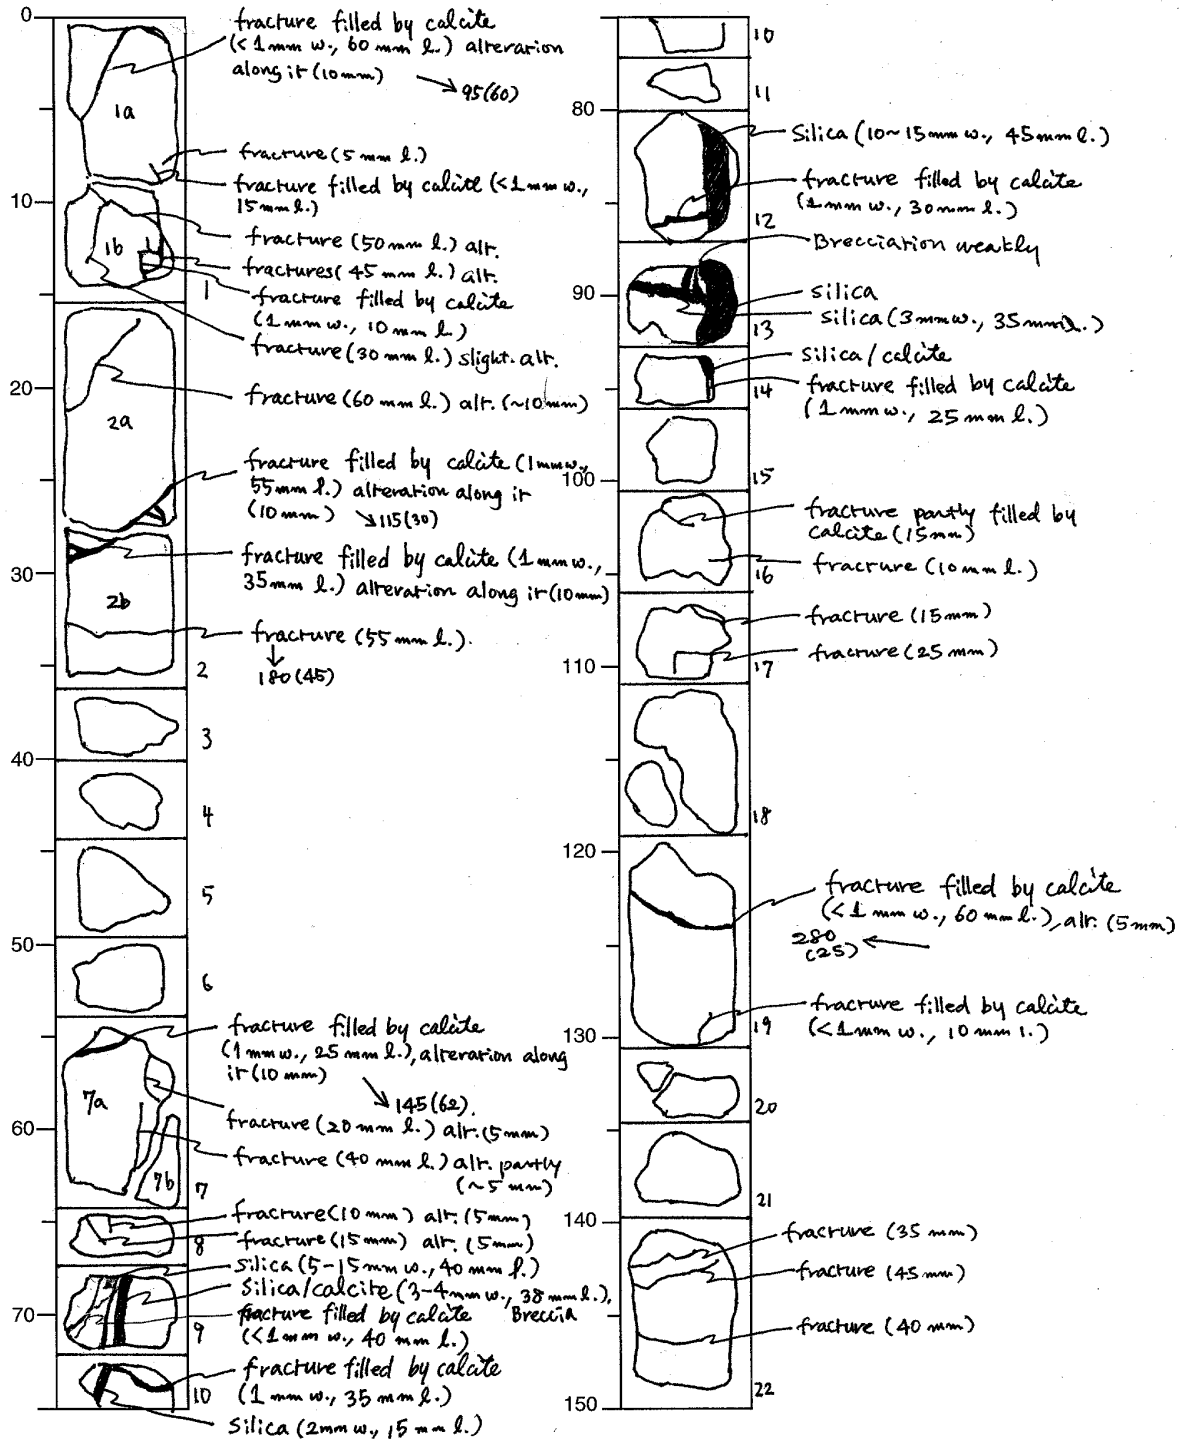 0
fracture filled by calcite
(<1mm w., 60 mm l.) alteration
along it (10mm)
95(60)
1a
fracture (5 mm l.)
fracture filled by calcite (<1mm w.,
15mm l.)
10
1b
fracture (50 mm l.) alt.
fractures (45 mm l.) alt.
1
fracture filled by calcite
(1mm w., 10 mm l.)
fracture (30 mm l.) slight. alt.
20
fracture (60 mm l.) alt. (~10mm)
2a
fracture filled by calcite (1mm w.,
55mm l.) alteration along it
(10 mm)
115(30)
fracture filled by calcite (1mm w.,
35mm l.) alteration along it (10mm)
30
2b
fracture (55 mm l.).
180 (45)
2
3
40
4
5
50
6
fracture filled by calcite
(1mm w., 25 mm l.), alteration along
it (10 mm)
145(62).
7a
fracture (20mm l.) alt. (5mm)
60
fracture (40 mm l.) alt. partly
(~5 mm)
7b
7
fracture (10 mm) alt. (5mm)
8
fracture (15mm) alt. (5mm)
silica (5-15mm w., 40 mm l.)
Silica/calcite (3-4mm w., 38 mm l.),
70
9
fracture filled by calcite Breccia
(<1mm w., 40 mm l.)
fracture filled by calcite
10
(1mm w., 35mm l.)
Silica (2mm w., 15 mm l.)
10
11
80
Silica (10~15mm w., 45mm l.)
fracture filled by calcite
(1mm w., 30mm l.)
12
Brecciation weakly
90
silica
silica (3mm w., 35mm l.)
13
silica/calcite
14
fracture filled by calcite
(1mm w., 25mm l.)
15
100
fracture partly filled by
calcite (15mm)
16
fracture (10mm l.)
fracture (15mm)
17
fracture (25 mm)
110
18
120
fracture filled by calcite
(<1mm w., 60 mm l.), alt. (5mm)
280
(25)
19
fracture filled by calcite
(<1mm w., 10mm l.)
130
20
21
140
fracture (35 mm)
fracture (45mm)
fracture (40 mm)
22
150